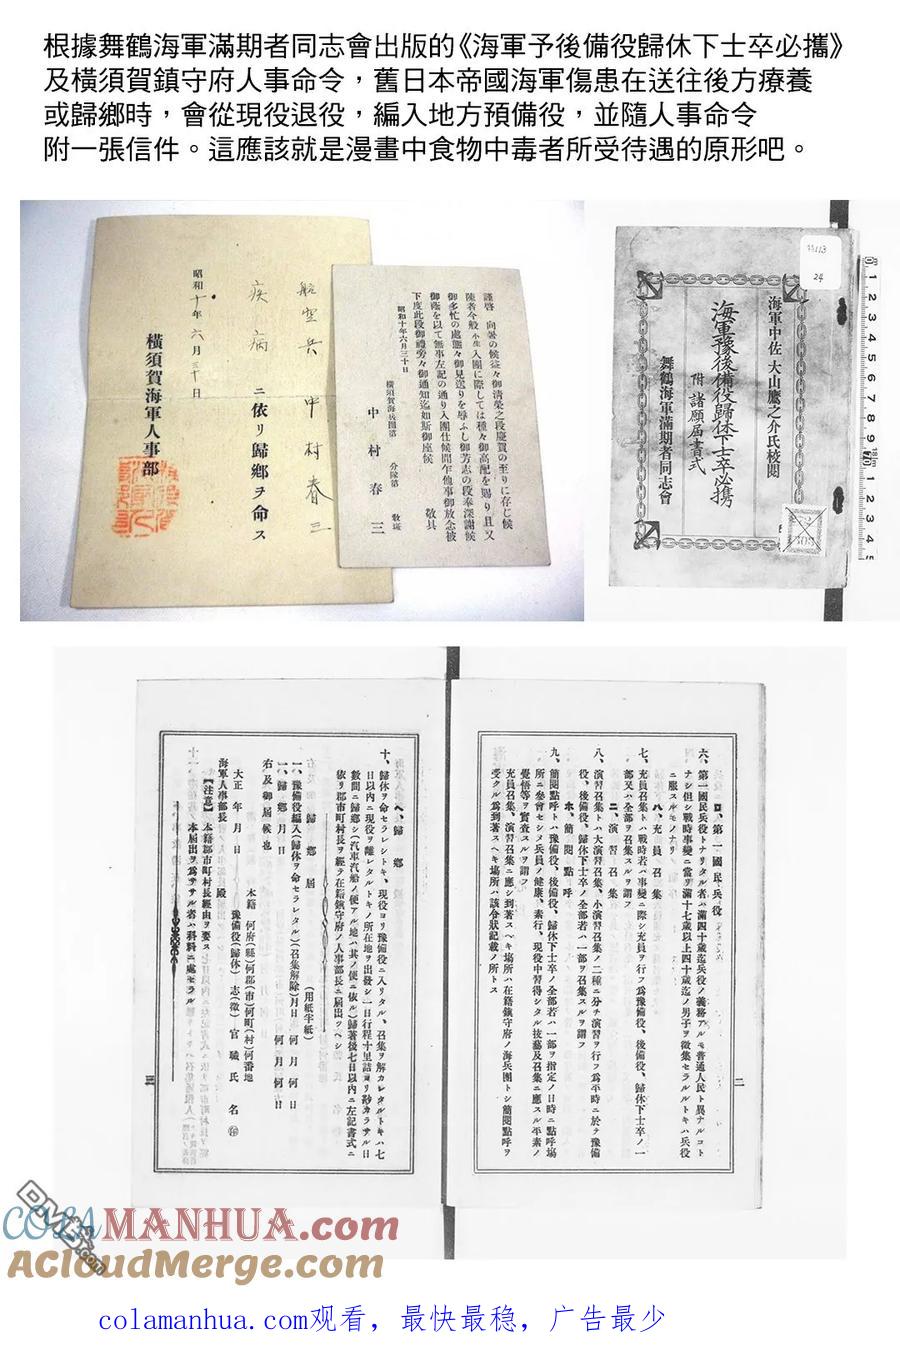 根據舞鶴海軍滿期者同志會出版的《海軍予後備役歸休下士卒必攜》
及橫須賀鎮守府人事命令，舊日本帝國海軍傷患在送往後方療養
或歸鄉時，會從現役退役，編入地方預備役，並隨人事命令
附一張信件。這應該就是漫畫中食物中毒者所受待遇的原形吧。
航空兵 中村春三
疾病 ニ依リ歸鄉ヲ命ス
昭和十年六月三十日
橫須賀海軍人事部
謹啓 向暑の候益々御淸榮之段慶賀の至りに存じ候
陳者今般小生入團に際しては種々御高配を賜り且又
御多忙の處態々御見送りを辱ふし御芳志の段奉深謝候
御蔭を以て無事左記の通り入團仕候間乍他事御放念被
下度此段御禮旁々御通知迄如斯御座候 敬具
昭和十年六月三十日
橫須賀海兵團第 分隊第 敎班
中村春三
海軍中佐 大山鷹之介氏校閱
海軍豫後備役歸休下士卒必携
附 諸願屆書式
舞鶴海軍滿期者同志會
ロ、第一國民兵役
六、第一國民兵役トナリタル者ハ滿四十歲迄兵役ノ義務アルモ普通人民ト異ナルコト
ナシ但シ戰時事變ニ當リ滿十七歲以上四十歲迄ノ男子ヲ徵集セラルルトキハ兵役
ニ服スルモノナリ
ハ、充員召集
七、充員召集トハ戰時若ハ事變ニ際シ充員ヲ行フ爲豫備役、後備役、歸休下士卒ノ一
部又ハ全部ヲ召集スルヲ謂フ
ニ、演習召集
八、演習召集トハ大演習召集、小演習召集ノ二種ニ分チ演習ヲ行フ爲平時ニ於テ豫備
役、後備役、歸休下士卒ノ全部若ハ一部ヲ召集スルヲ謂フ
ホ、簡閱點呼
九、簡閱點呼トハ豫備役、後備役、歸休下士卒ノ全部若ハ一部ヲ指定ノ日時ニ點呼場
所ニ參會セシメ兵員ノ健康、素行、現役中習得シタル技藝及召集ニ應スル平素ノ
覺悟等ヲ實査スルヲ謂フ
充員召集、演習召集ニ應シ到著スヘキ場所ハ在籍鎭守府ノ海兵團トシ簡閱點呼ヲ
受クル爲到著スヘキ場所ハ該令狀記載ノ所トス
二
ヘ、歸鄉
十、歸休ヲ命セラレシトキ、現役ヨリ豫備役ニ入リタル、召集ヲ解カレタルトキハ七
日以內ニ現役ヲ離レタルトキノ所在地ヲ出發シ一日行程十里詰ヨリ尠カラサル日
數間ニ歸鄉シ(汽車汽船ノ便アル地ハ其ノ便ニ依ル)歸著後七日以內ニ左記書式ニ
依リ郡市町村長ヲ經テ在籍鎭守府ノ人事部長ニ屆出ツヘシ
歸鄉屆 (用紙半紙)
一、豫備役編入(歸休ヲ命セラレタル)(召集解除)月日 何月何日
一、歸鄉月日 何月何日
右及御屆候也
本籍 何府(縣)何郡(市)何町(村)何番地
豫備役(歸休) 志(徵) 官職氏名 ㊞
大正 年 月 日
海軍人事部長 殿
【注意】 本籍郡市町村長經由ヲ要ス
本屆出ヲ爲ササル者ハ科料ニ處セラル
三
COLAMANHUA.com
AcloudMerge.com
colamanhua.com观看，最快最稳，广告最少